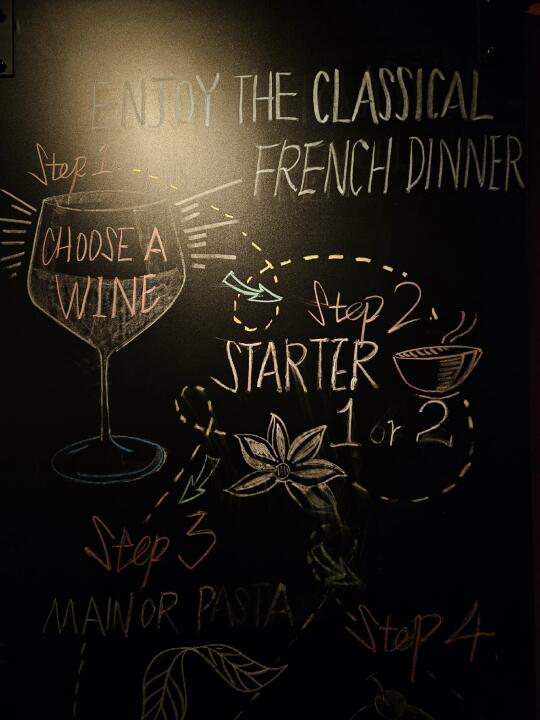 ENJOY THE CLASSICAL
FRENCH DINNER
Step 1
CHOOSE A
WINE
Step 2
STARTER
1 or 2
Step 3
MAIN OR PASTA
Step 4